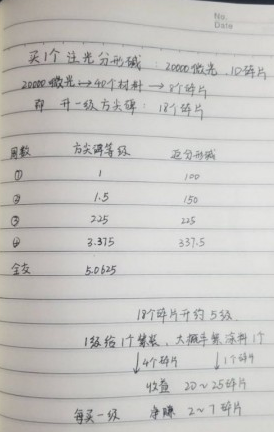 No.
Date
买1个 注光分形碱：20000微光，10碎片
20000微光→40个材料→8个碎片
即 开一级方尖碑：18个碎片
周数 方尖碑等级 注分形碱
① 1 100
② 1.5 150
③ 2.25 225
④ 3.375 337.5
全支 5.0625
18个碎片开约5级
1级给1个紫装，大概率紫涂料1个
↓4个碎片 ↓1个碎片
收益 20~25碎片
每买一级 净赚 2~7碎片